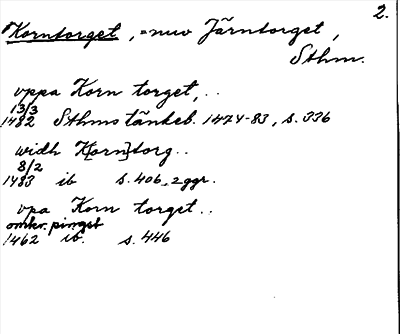 2.
Korntorget, = nuv Järntorget,
Sthm.
vppa Korn torget, ..
13/3
1482 Sthms tänkeb. 1474-83, s. 336
widh K[orn]torg..
8/2
1483 ib s. 406, 2 ggr.
vpa Korn torget..
omkr. pingst
1462 ib. s. 446